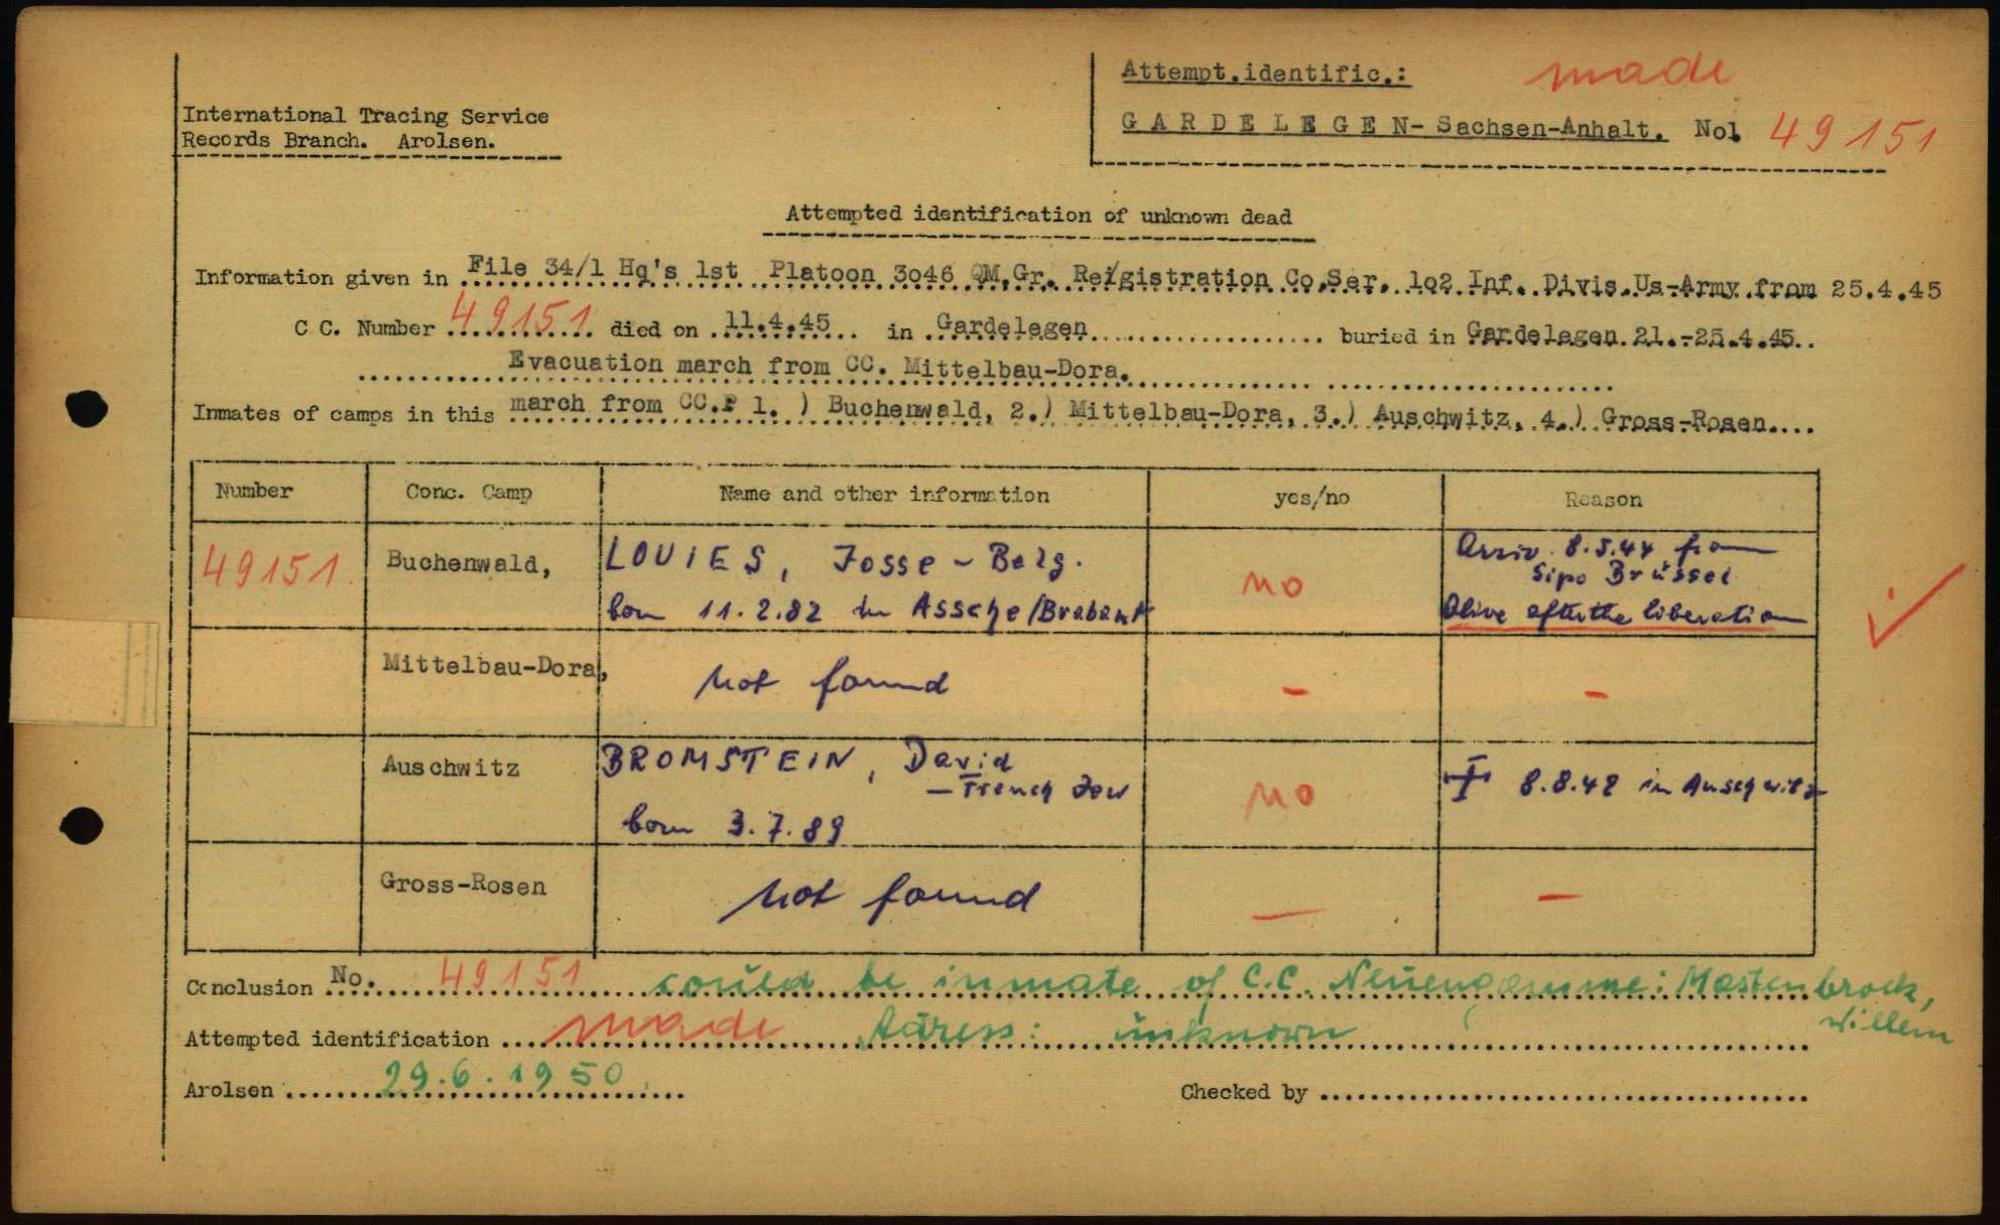 Attempt.identific.: made
International Tracing Service
Records Branch. Arolsen.
G A R D E L E G E N- Sachsen-Anhalt. No. 49151
Attempted identification of unknown dead
Information given in File 34/1 Hq's 1st Platoon 3o46 QM.Gr. Re/gistration Co.Ser. 1o2 Inf. Divis.Us-Army from 25.4.45
C C. Number 49151 died on 11.4.45 in Gardelegen buried in Gardelegen 21.-25.4.45.
Evacuation march from CC. Mittelbau-Dora.
Inmates of camps in this march from CC.P 1. ) Buchenwald, 2.) Mittelbau-Dora, 3.) Auschwitz, 4.) Gross-Rosen
Number Conc. Camp Name and other information yes/no Reason
49151 Buchenwald, LOUIES, Josse - Belg. no Arriv. 8.5.44 from
Sipo Brüssel
born 11.2.82 in Assche/Brabant Alive after the liberation
Mittelbau-Dora, not found - -
Auschwitz BROMSTEIN, David no † 8.8.42 in Auschwitz
- French Jew
born 3.7.89
Gross-Rosen not found - -
Conclusion No. 49151 could be inmate of C.C. Neuengamme: Mastenbroek,
Willem
Attempted identification made Adress: unknown
Arolsen 29.6.1950. Checked by